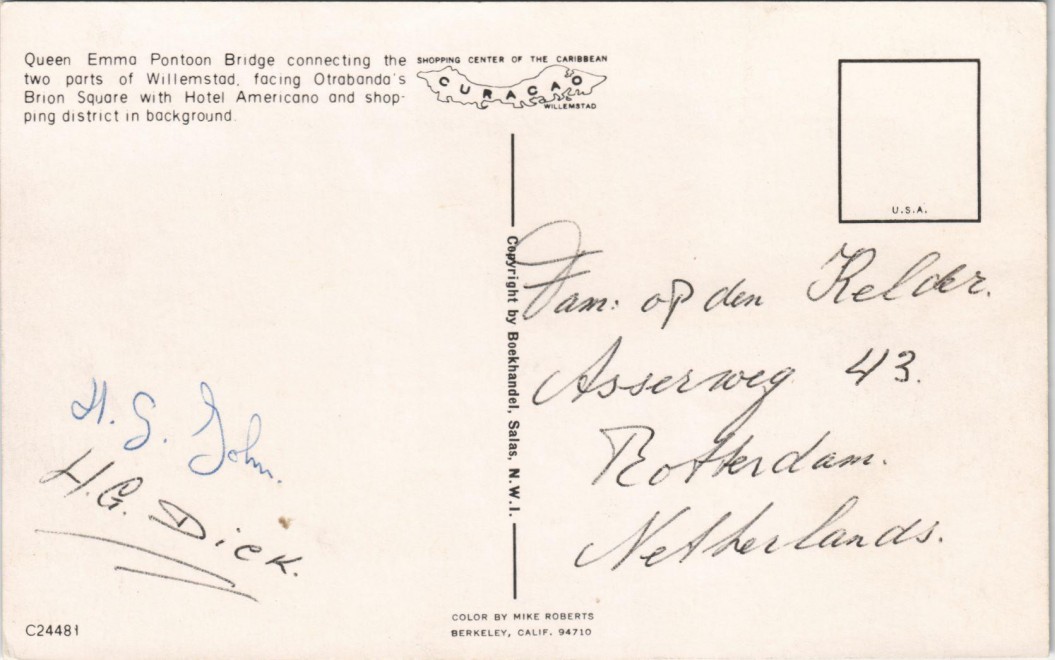 Queen Emma Pontoon Bridge connecting the
two parts of Willemstad, facing Otrabanda's
Brion Square with Hotel Americano and shop-
ping district in background.
SHOPPING CENTER OF THE CARIBBEAN
CURACAO
WILLEMSTAD
U.S.A.
Copyright by Boekhandel, Salas, N.W.I.
Fam: op den Kelder.
Asserweg 43.
Rotterdam.
Netherlands.
H. G. John.
H.G. Dick.
C24481
COLOR BY MIKE ROBERTS
BERKELEY, CALIF. 94710